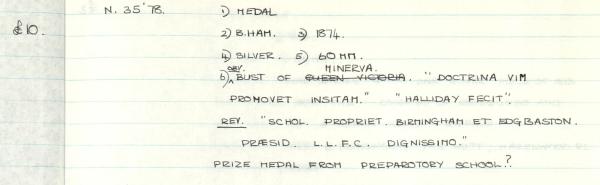 N. 35' 78. 1) MEDAL
£10. 2) B.HAM. 3) 1874.
4) SILVER. 5) 60 MM.
OBV. MINERVA.
6) BUST OF QUEEN VICTORIA. "DOCTRINA VIM
PROMOVET INSITAM." "HALLIDAY FECIT".
REV. "SCHOL. PROPRIET. BIRMINGHAM ET EDGBASTON.
PRÆSID. L.L.F.C. DIGNISSIMO."
PRIZE MEDAL FROM PREPAROTORY SCHOOL?